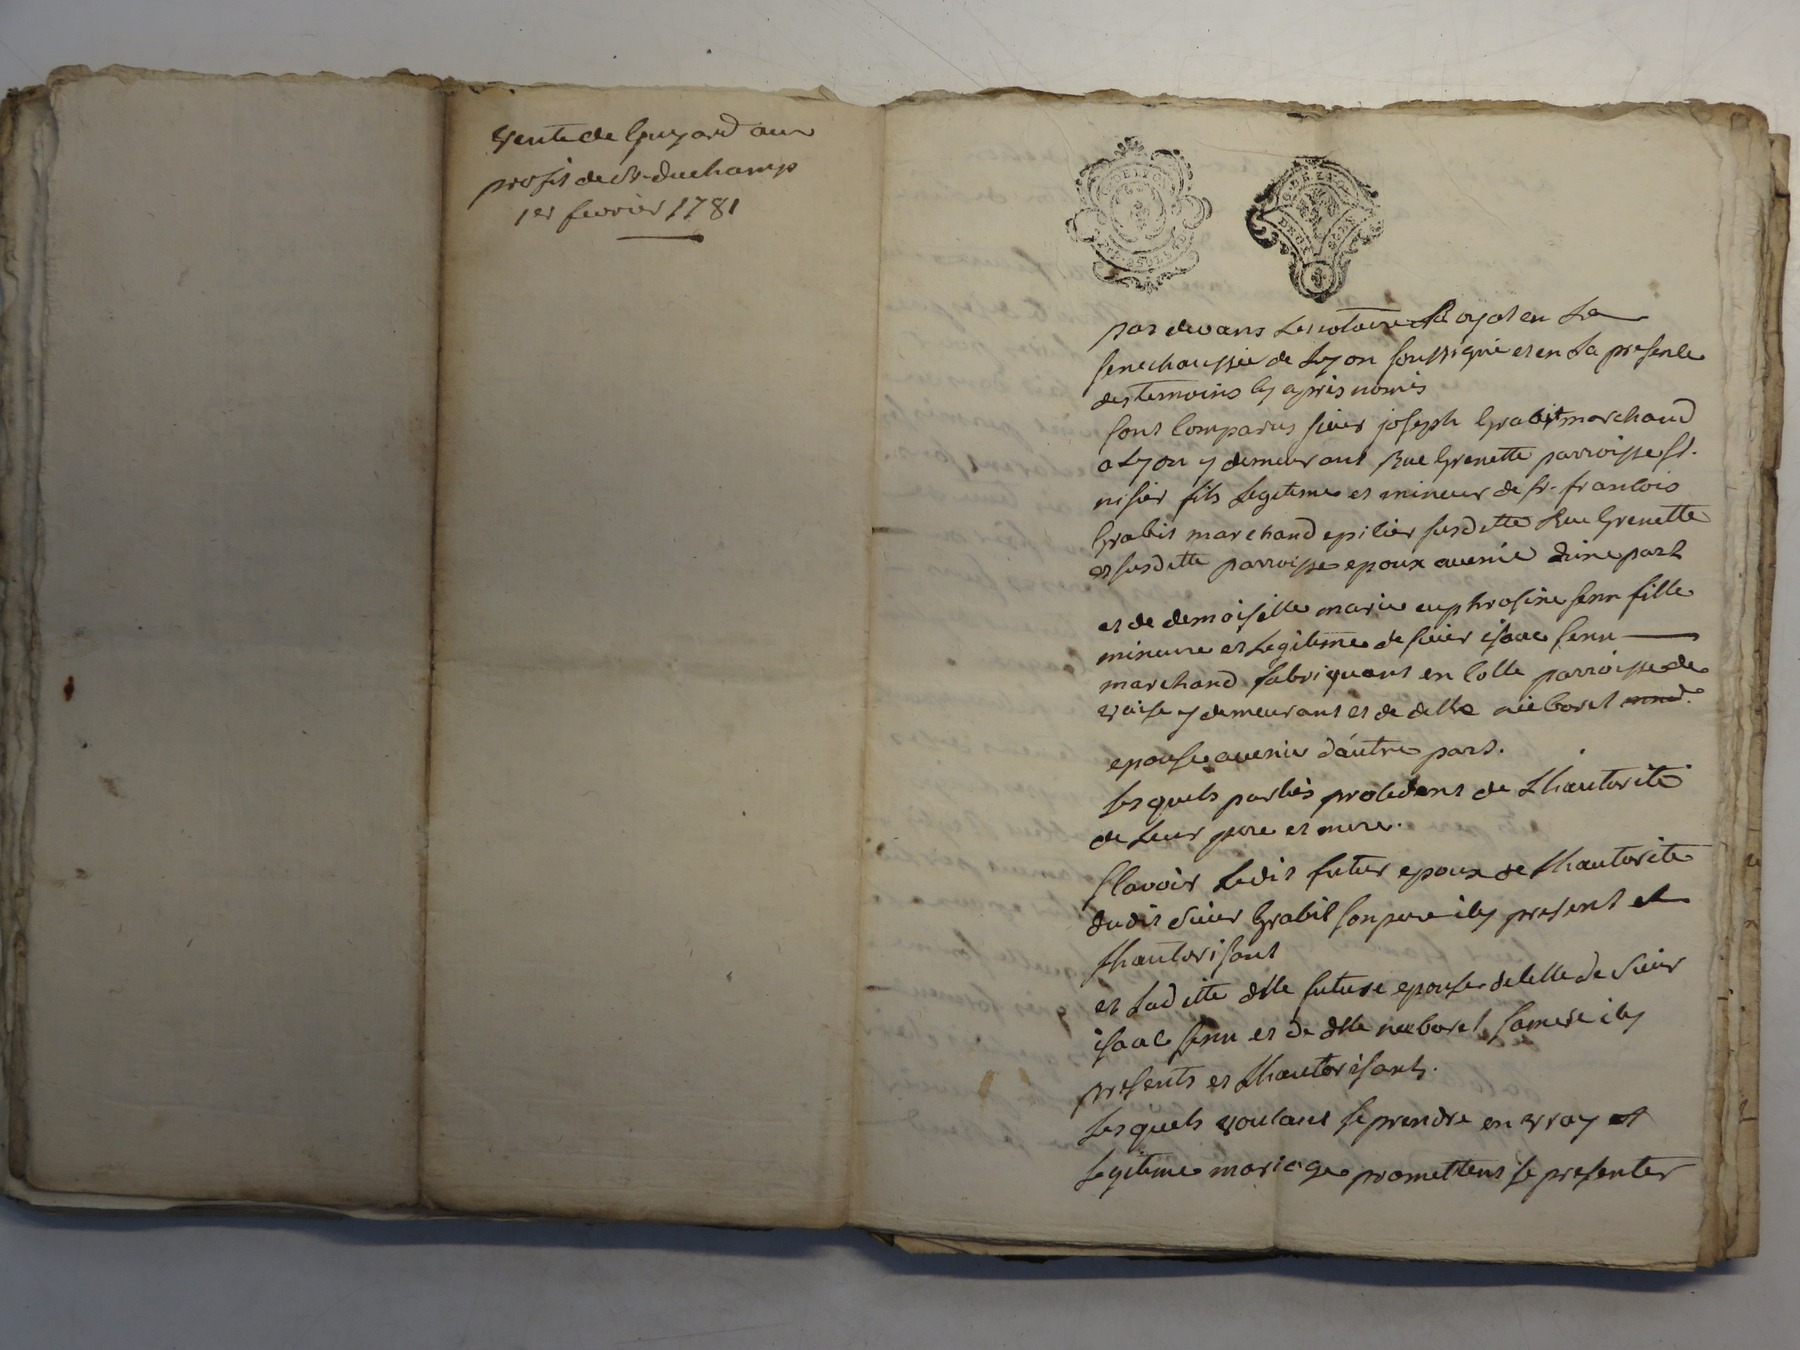 vente de Guyard au
profit de Sr. duchamp
1er fevrier 1781
par devans Le notaire Royal en La
senechaussée de Lyon soussigné et en La presence
des temoins cy apres només
sont comparus sieur joseph Grabit marchand
a Lyon y demeurant Rue Grenette parroisse st.
nisier fils Legitime et mineur de sr. francois
Grabit marchand epicier susditte Rue Grenette
et susditte parroisse epoux avenir d'une part
et de demoiselle marie euphrosine senn fille
mineure et Legitime de sieur isaac senn
marchand fabriquant en colle parroisse de
vaise y demeurant et de delle née borel
epouse avenir d'autre part.
Lesquels parties procedent de Lhautorité
de Leur pere et mere.
scavoir Ledit futur epoux de Lhautorité
dudit sieur Grabit son pere icy present et
Lhautorisant
et Laditte dlle future epouse de celle de sieur
isaac senn et de dlle née borel sa mere icy
presents et Lhautorisants.
Lesquels voulant se prendre en vray et
Legitime mariage promettent se presenter